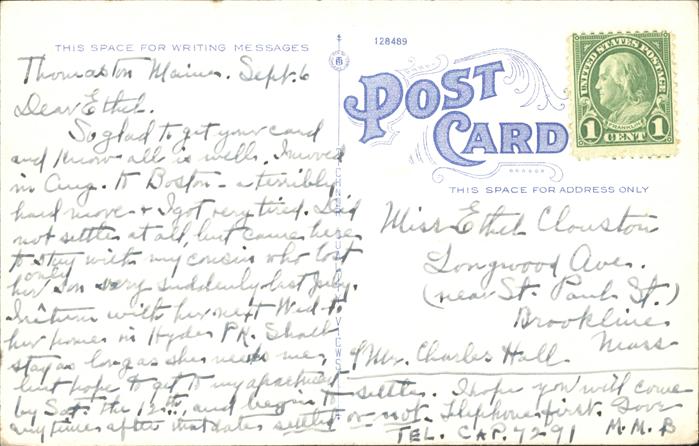 THIS SPACE FOR WRITING MESSAGES
Thomaston Maine. Sept. 6
Dear Ethel.
So glad to get your card
and know all is well. I moved
in Aug. to Boston - a terribly
hard move & I got very tired. Did
not settle at all, but came here
to stay with my cousin who lost
only
her son very suddenly last July.
I return with her next Wed. to
her home in Hyde PK. Shall
stay as long as she needs me,
but hope to get to my apartment
by Sat. the 12th, and begin to settle. I hope you will come
any time after that date settled or not. Telephone first. Love
TEL. CAP. 7291 M.M.B
128489
POST
CARD
UNITED STATES POSTAGE
FRANKLIN
1 CENT 1
THIS SPACE FOR ADDRESS ONLY
Miss Ethel Clouston
Longwood Ave.
(near St. Paul St.)
Brookline
Mass
% Mr. Charles Hall